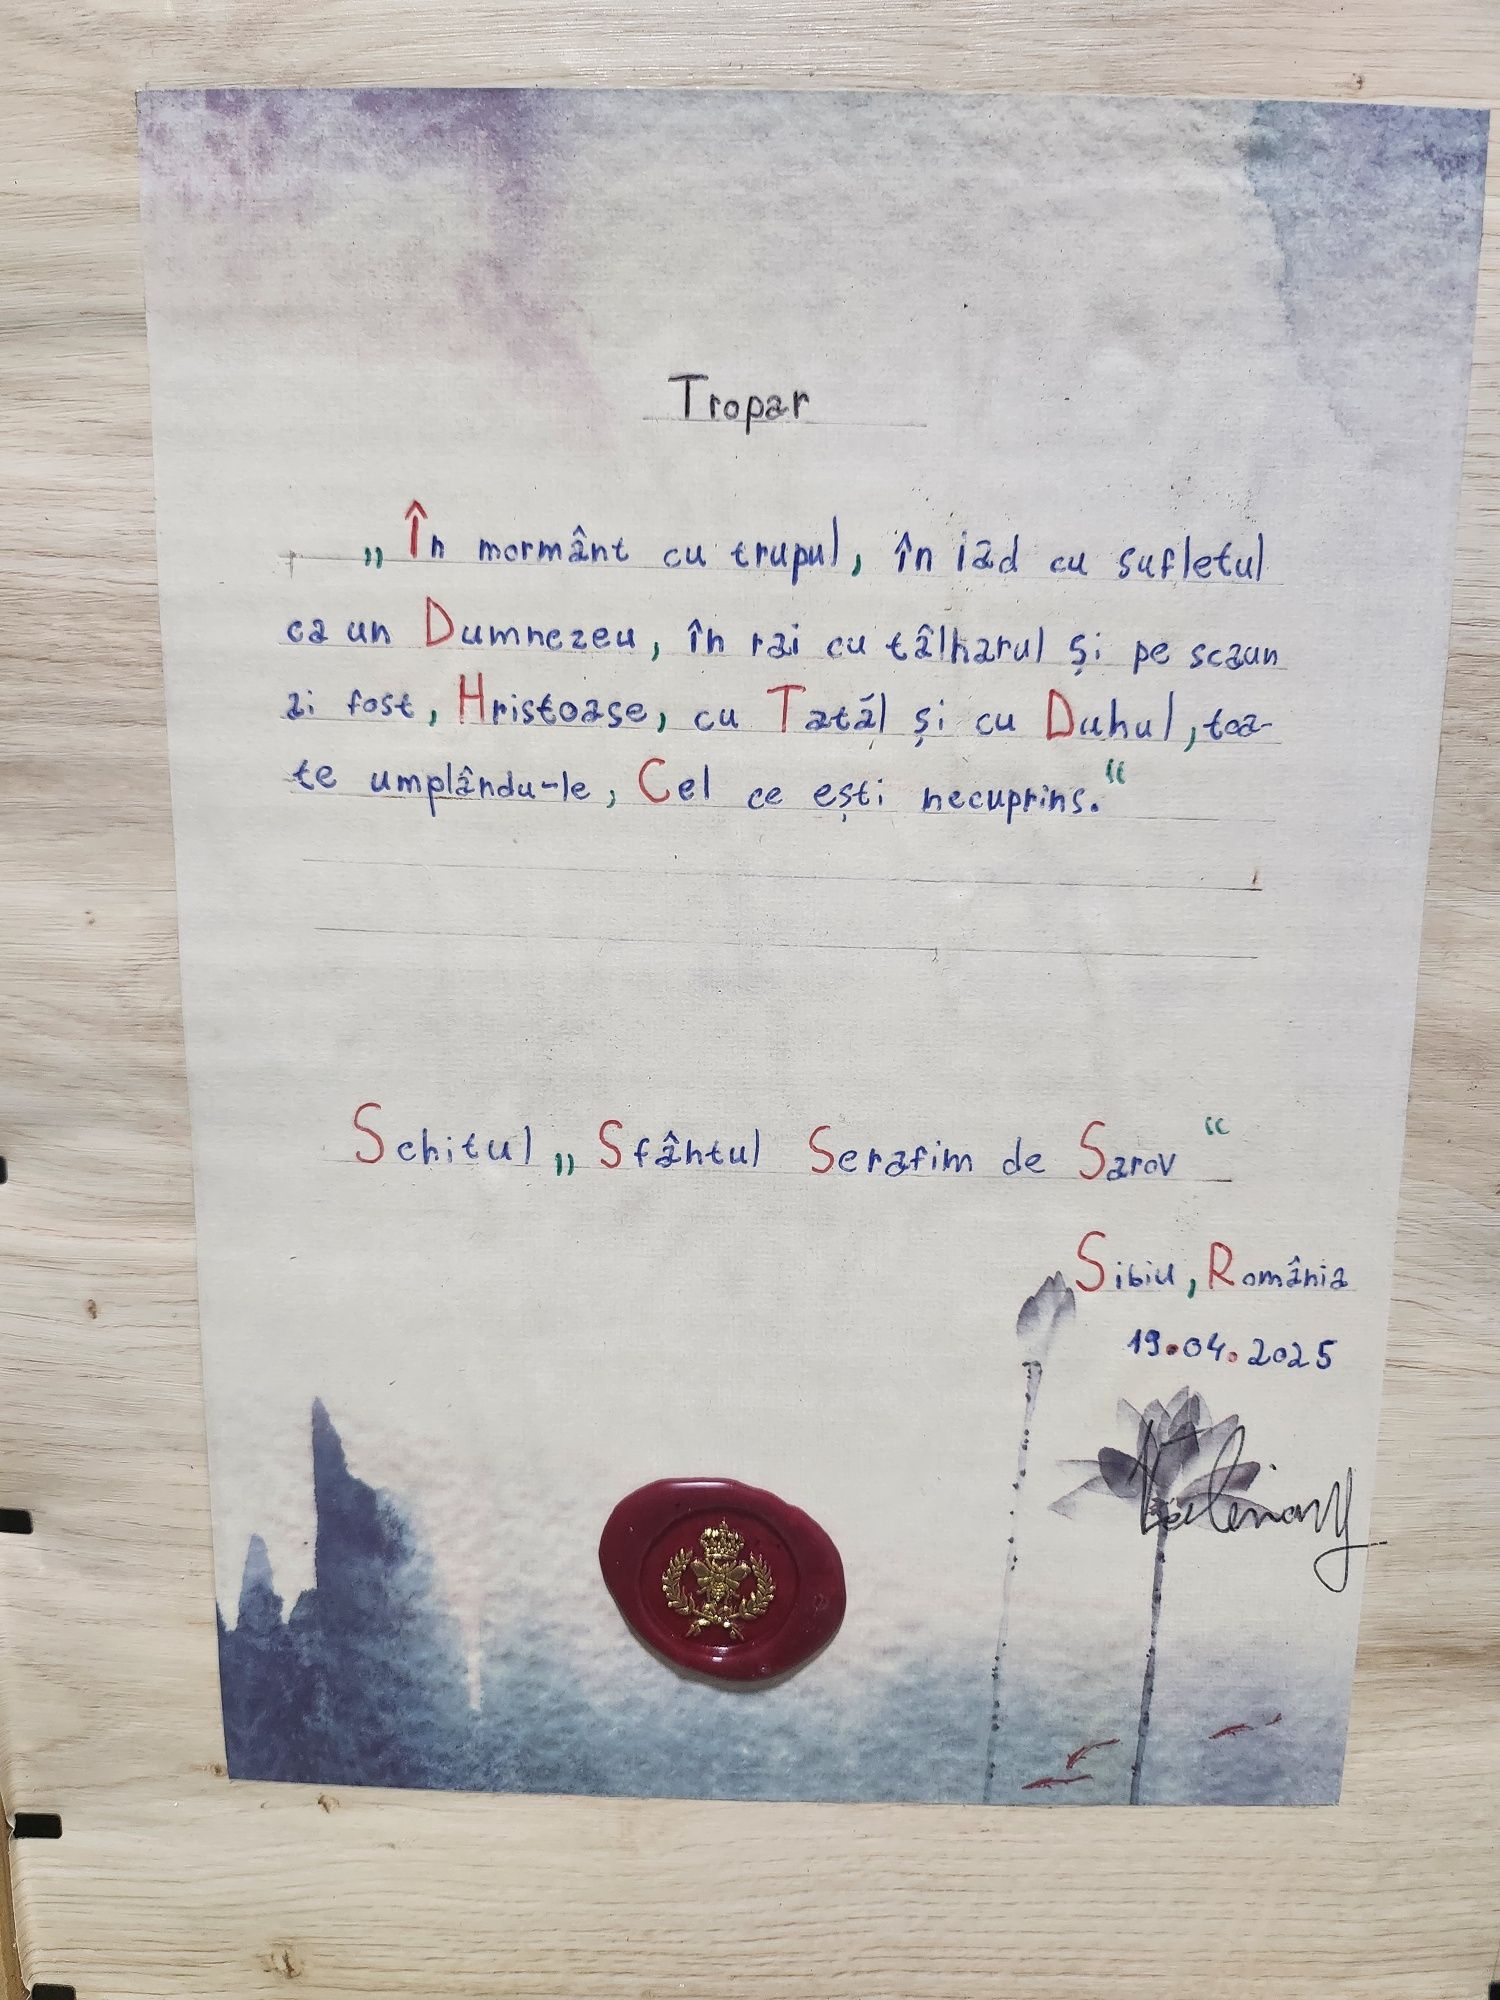 Tropar
„În mormânt cu trupul, în iad cu sufletul
ca un Dumnezeu, în rai cu tâlharul și pe scaun
ai fost, Hristoase, cu Tatăl și cu Duhul, toa-
te umplându-le, Cel ce ești necuprins.“
Schitul „Sfântul Serafim de Sarov“
Sibiu, România
19.04.2025